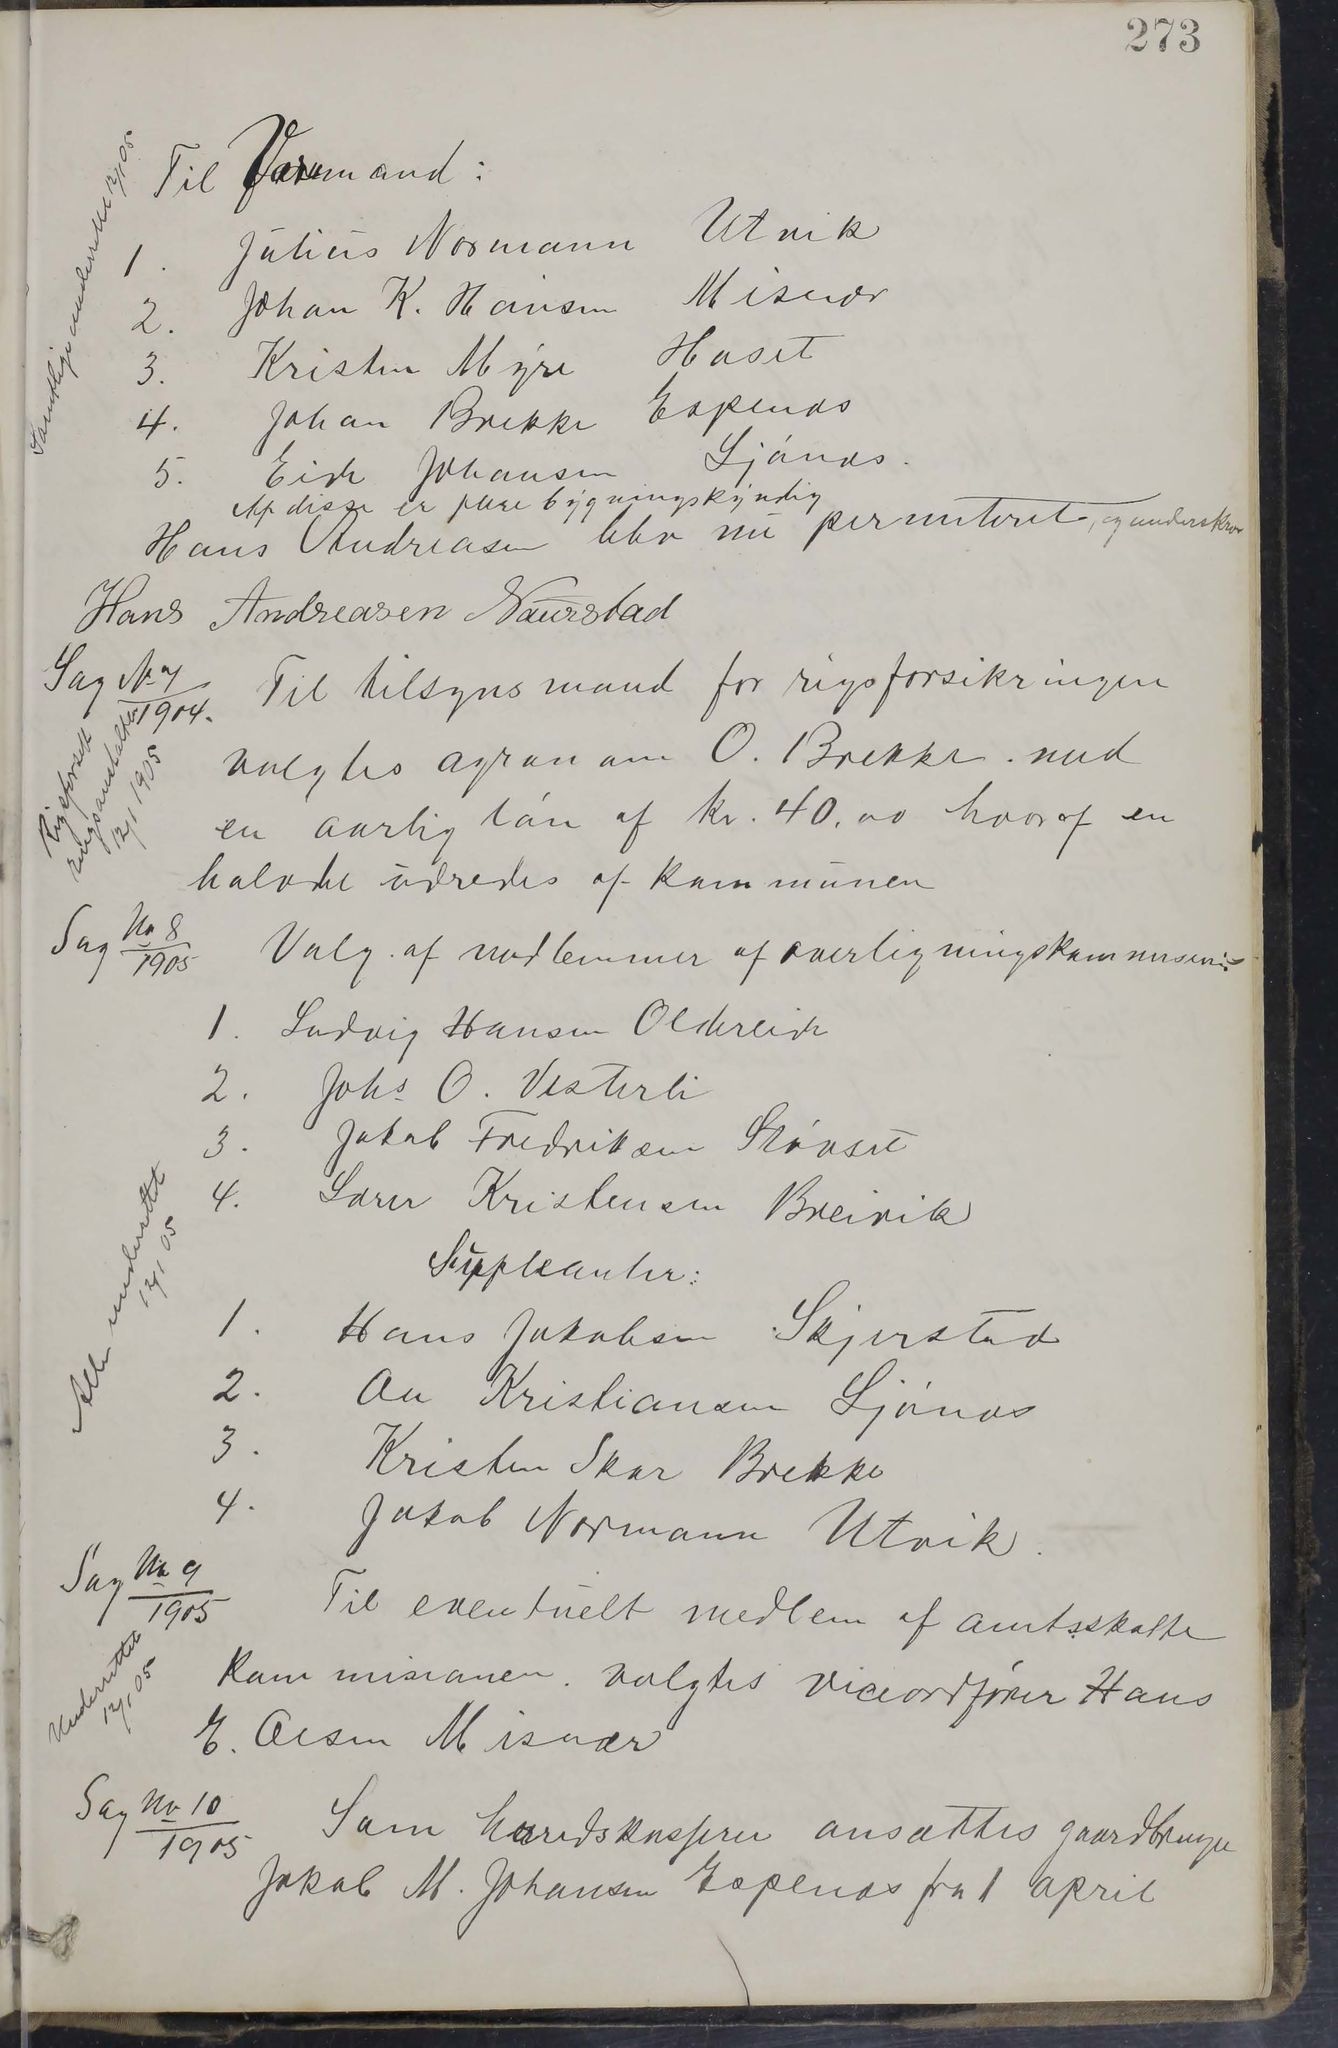 273
Til Varamand:
Samtlige underrettet 12/1 05
1. Julius Normann Utvik
2. Johan K. Hansen Misvær
3. Kristen Myre Haset
4. Johan Brekke Espenæs
5. Eide Johansen Ljønæs.
Af disse er flere bygningskyndig
Hans Andreasen blev nu permiteret, og underskrev
Hans Andreasen Naurstad
Sag No 7/1904.
Rigsforsik
ringsanstalten
12/1 1905
Til tilsynsmand for rigsforsikringen
valgtes agronom O. Brekke. med
en aarlig løn af kr. 40.00 hvoraf en
halvdel udredes af kommunen
Sag No 8/1905
Valg. af medlemmer af overligningskommisen:
1. Ludvig Hansen Oldereide
2. Johs O. Vesterli
3. Jakob Fredriksen Støvset
4. Lærer Kristensen Breivik
Alle underrettet
12/1 05
Suppleanter:
1. Hans Jakobsen Skjerstad
2. Ole Kristiansen Ljønæs
3. Kristen Skar Brekke
4. Jakob Normann Utvik.
Sag No 9/1905
Underrettet
12/1 05
Til eventuelt medlem af amtsskatte
kommisionen. valgtes viceordfører Hans
E. Olsen Misvær
Sag No 10/1905
Som herredskasserer ansættes gaardbruger
Jakob M. Johansen Espenæs fra 1 april